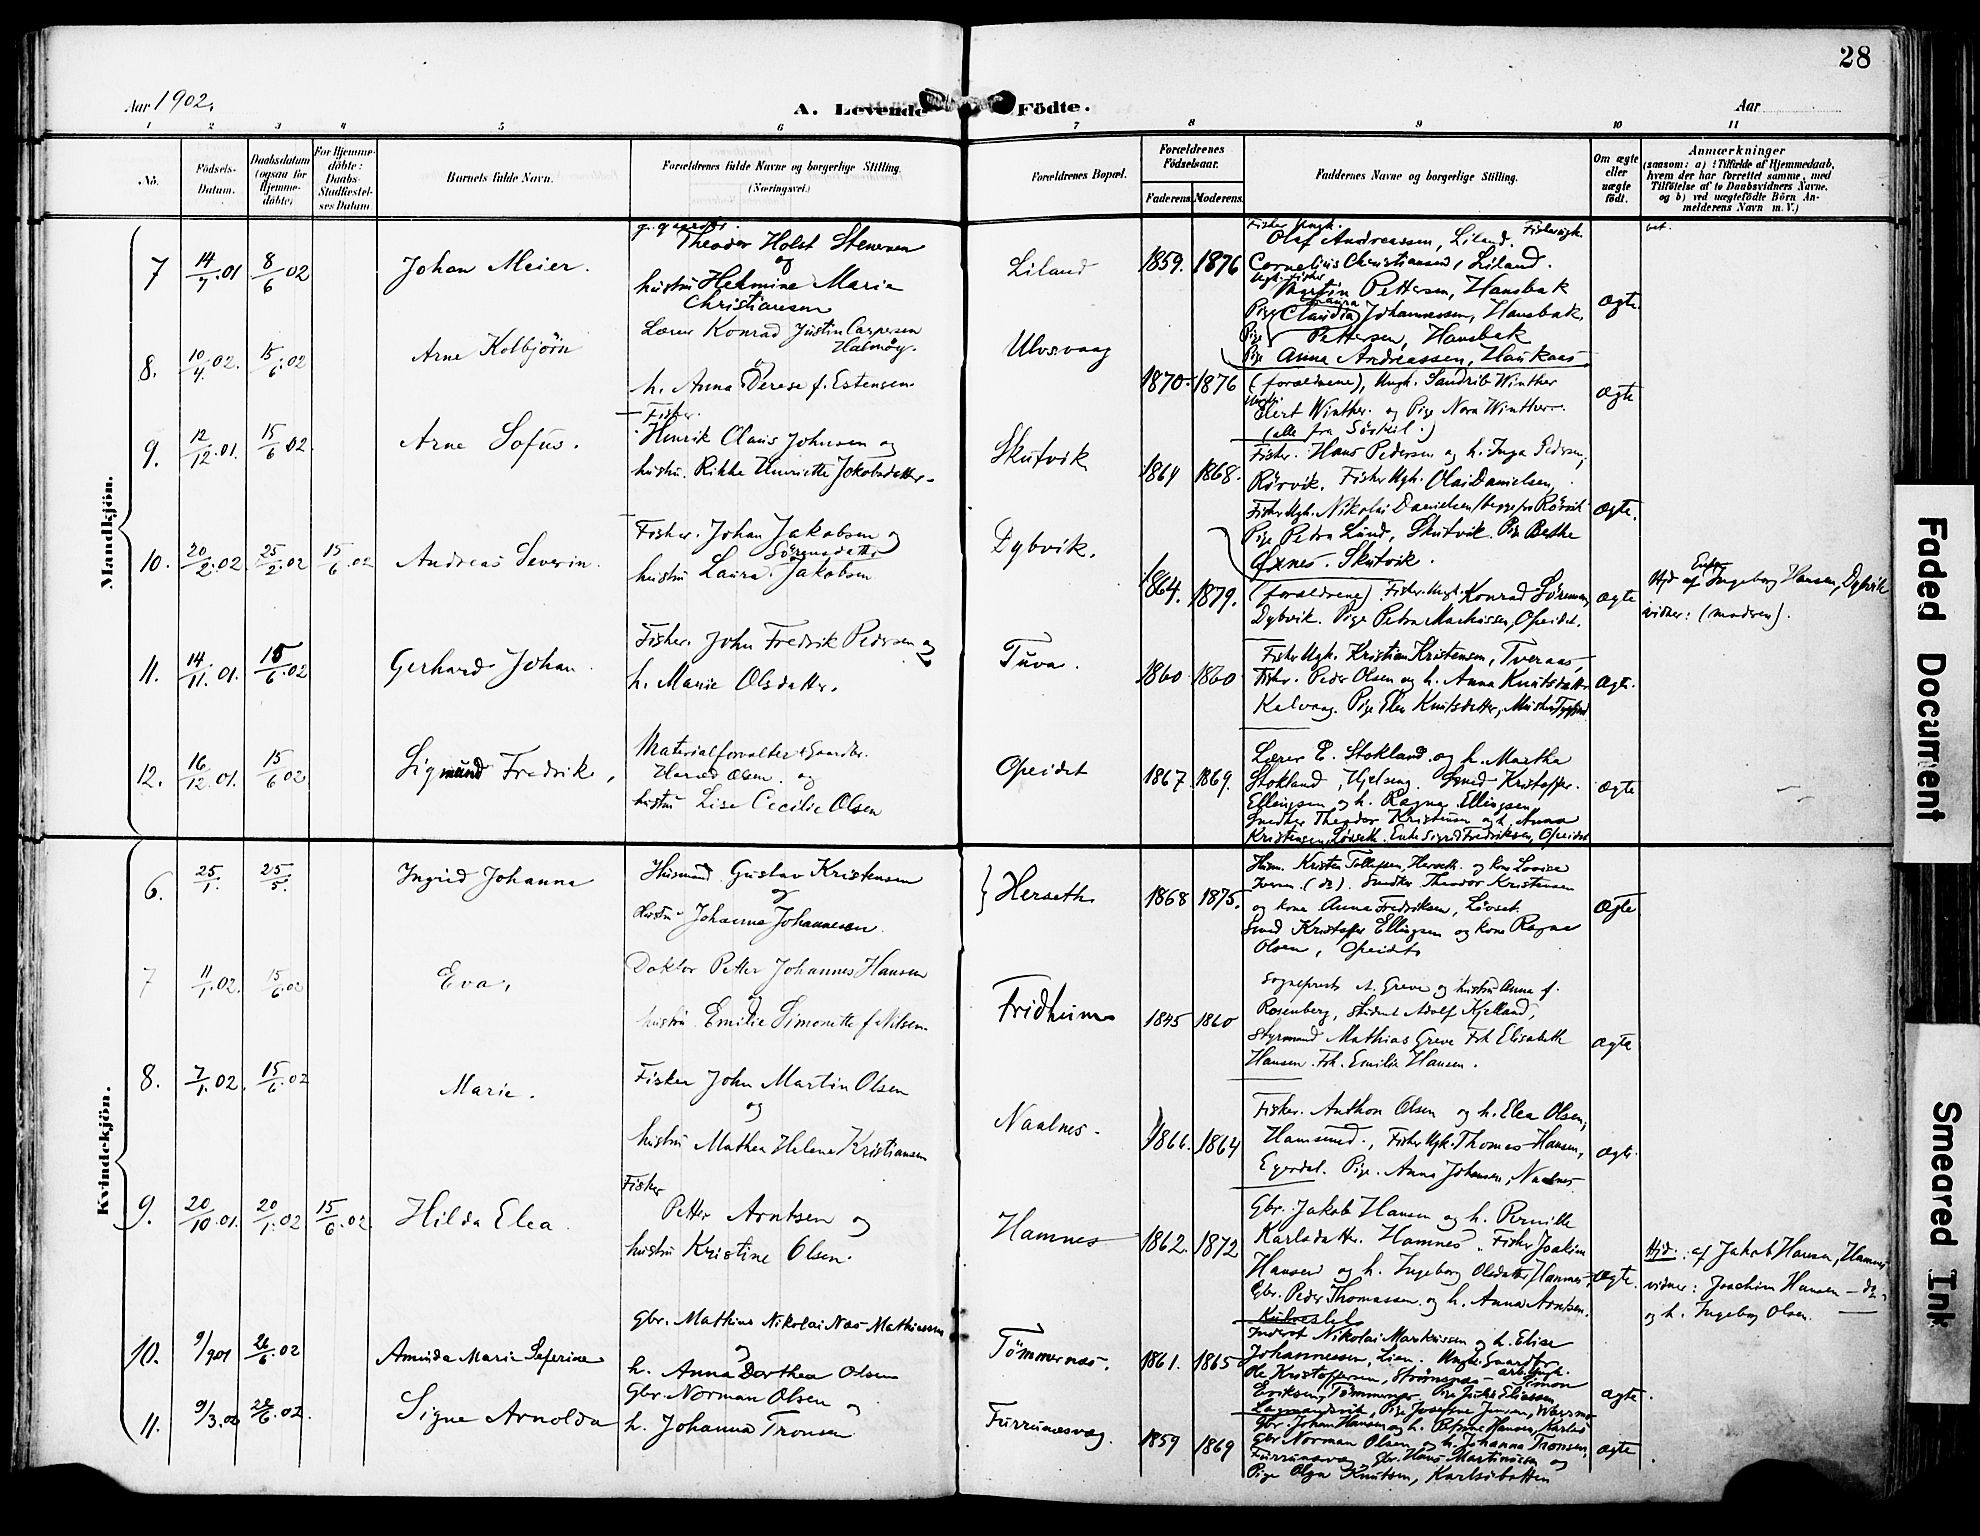 28
Aar 1902.
A. Levende Födte.
Aar
1 2 3 4 5 6 7 8 9 10 11
No.
Födsels-Datum.
Daabsdatum (ogsaa for Hjemme-döbte)
For Hjemme-döbte: Daabs-Stadfæstel-ses Datum.
Barnets fulde Navn.
Forældrenes fulde Navne og borgerlige Stilling. (Næringsvei.)
Forældrenes Bopæl.
Forældrenes Födselsaar.
Faderens. Moderens.
Faddernes Navne og borgerlige Stilling.
Om ægte eller uægte födt.
Anmærkninger
(saasom: a) i Tilfælde af Hjemmedaab, hvem der har forrettet samme, med Tilföielse af to Daabsvidners Navne. og b) ved uægtefödte Börn An-melderens Navn m. V.)
Mandkjön.
7 14/7.01 8/6 02
Johan Meier.
Theodor Holst Stenersen
og
hustru Helmine Marie
Christiansen
Liland
1859. 1876
Olaf Andreassen, Liland.
Cornelius Christiansen, Liland.
Martin Pettersen, Hansbak
Pige Claudia Johannessen, Hansbak,
Pige Laura Pettersen, Hansbak
Pige Anna Andreassen, Haukaas
ægte
8. 10/4.02. 15/6.02
Arne Kolbjörn
Lærer Konrad Justin Caspersen
Halmøy.
h. Anna Derese f. Estensen
Ulvsvaag
1870. 1876
(forældrene), Ungk. Sandrib Winther
Elert Winther. og Pige Nora Winther.
(alle fra Sörkil.)
ægte
9. 12/12.01. 15/6 02.
Arne Sofus.
Fisker.
Henrik Claus Johnsen og
hustru. Rikke Henriette Jakobsdatter.
Skutvik
1864 1868.
Fisker. Hans Pedersen og h. Inga Pedersen,
Rörvik. Fisker Ugk. Olai Danielsen,
Fisker Ugk. Nikolai Danielsen, begge fra Rörvik
Pige Petra Lund, Skutvik. Pige Berthe
Øxnes. Skutvik.
ægte.
10. 20/2.02. 25/2.02 15/6.02
Andreas Severin.
Fisker. Johan Jakobsen og
Sörensdatter
hustru Laura Jakobsen
Dybvik.
1864. 1879.
(forældrene). Fisker. Ungk. Konrad Sörensen,
Dybvik. Pige Petra Markussen, Opeidet.
ægte
Hjd af Enke Ingeborg Hansen, Dybvik
vidner: (modren).
11. 14/11.01. 15/6.02
Gerhard Johan.
Fisker. John Fredrik Pedersen og
h. Marie Olsdatter.
Tuva.
1860 1860
Fisker Ugk. Kristian Kristensen, Tveraas,
Fisker. Peder Olsen og h. Anna Knutsdatter
Kalvaag. Pige Elen Knutsdatter,
ægte.
12. 16/12.01. 15/6 02
Sigmund Fredrik,
Materialforvalter & Gaardbr.
Harald Olsen. og
hustru Lise Cecilie Olsen
Opeidet
1867. 1869.
Lærer E. Stokland og h. Martha
Stokland, Hjelseng. Smed Kristoffer
Ellingsen og h. Ragna Ellingsen
Snedker Theodor Kristensen og h. Anna
Kristensen, Lövseth. Enke Sigrid Fredriksen, Opeidet
ægte
Kvindekjön.
6. 25/1. 25/5.
Ingrid Johanna
Husmand Gustav Kristensen
og
Hustru Johanna Johannesen
Herseth
1868 1875.
Husm. Kristen Tollefsen, Herseth. og kone Lovise
Iversn. (do). Snedker Theodor Kristensen
og kone Anna Fredriksen, Lövset.
Smed Kristoffer Ellingsen og kone Ragna
Olsen, Opeidet
ægte
7 11/1.02. 15/6.02
Eva,
Doktor Petter Johannes Hansen
og
hustru Emilie Simonette f. Nilsen
Fridheim
1845 1860
Sogneprest A. Greve og hustru Anna f.
Rosenberg, Student Adolf Kjelland,
Styrmand Mathias Greve Frk Elisabeth
Hansen. Frk. Emilie Hansen.
ægte
8. 7/1.02. 15/6.02
Marie.
Fisker John Martin Olsen
og
hustru Mathea Helene Kristiansen
Naalnes.
1866. 1864
Fisker. Anthon Olsen og h. Elea Olsen,
Hamsund., Fisker Ugk. Thomas Hansen,
Egerdal. Pige. Anna Johansen, Naalnes
ægte.
9. 20/10.01. 20/1.02 15/6.02
Hilda Elea.
Fisker
Petter Arntsen og
hustru Kristine Olsen.
Hamnes
1862. 1872
Gbr. Jakob Hansen og h. Pernille
Karlsdatter. Hamnes, Fisker Joakim
Hansen og h. Ingeborg Olsdatter, Hamnes,
Gbr. Peder Thomassen og h. Anna Arntsen.
ægte.
Hjd. af Jakob Hansen, Hamnes
vidner: Joachim Hansen – do –
og h. Ingeborg Olsen.
10. 9/901 26/6.02
Aminda Marie Seferine
Gbr. Mathias Nikolai Næs Mathiassen
og
h. Anna Dorthea Olsen
Tömmernæs.
1861. 1865
Inderst Nikolai Markussen og h. Elise
Johannessen, Lien.
Ole Kristoffersen, Strömsnæs – Simon
Eriksen, Tömmernæs,
ægte.
11. 9/3.02 26/6.02.
Signe Arnolda
Gbr. Norman Olsen og
h. Johanna Tronsen
Furrunæsvaag.
1859 1869
Gbr. Johan Hansen og h. Petrine Hansen,
Gbr Norman Olsen og h. Johanna Tronsen,
Furrunæsvag Gbr. Hans Martinussen og
Pige Olga Knutsen, Karlsøbotten
ægte
Faded Document
Smeared Ink